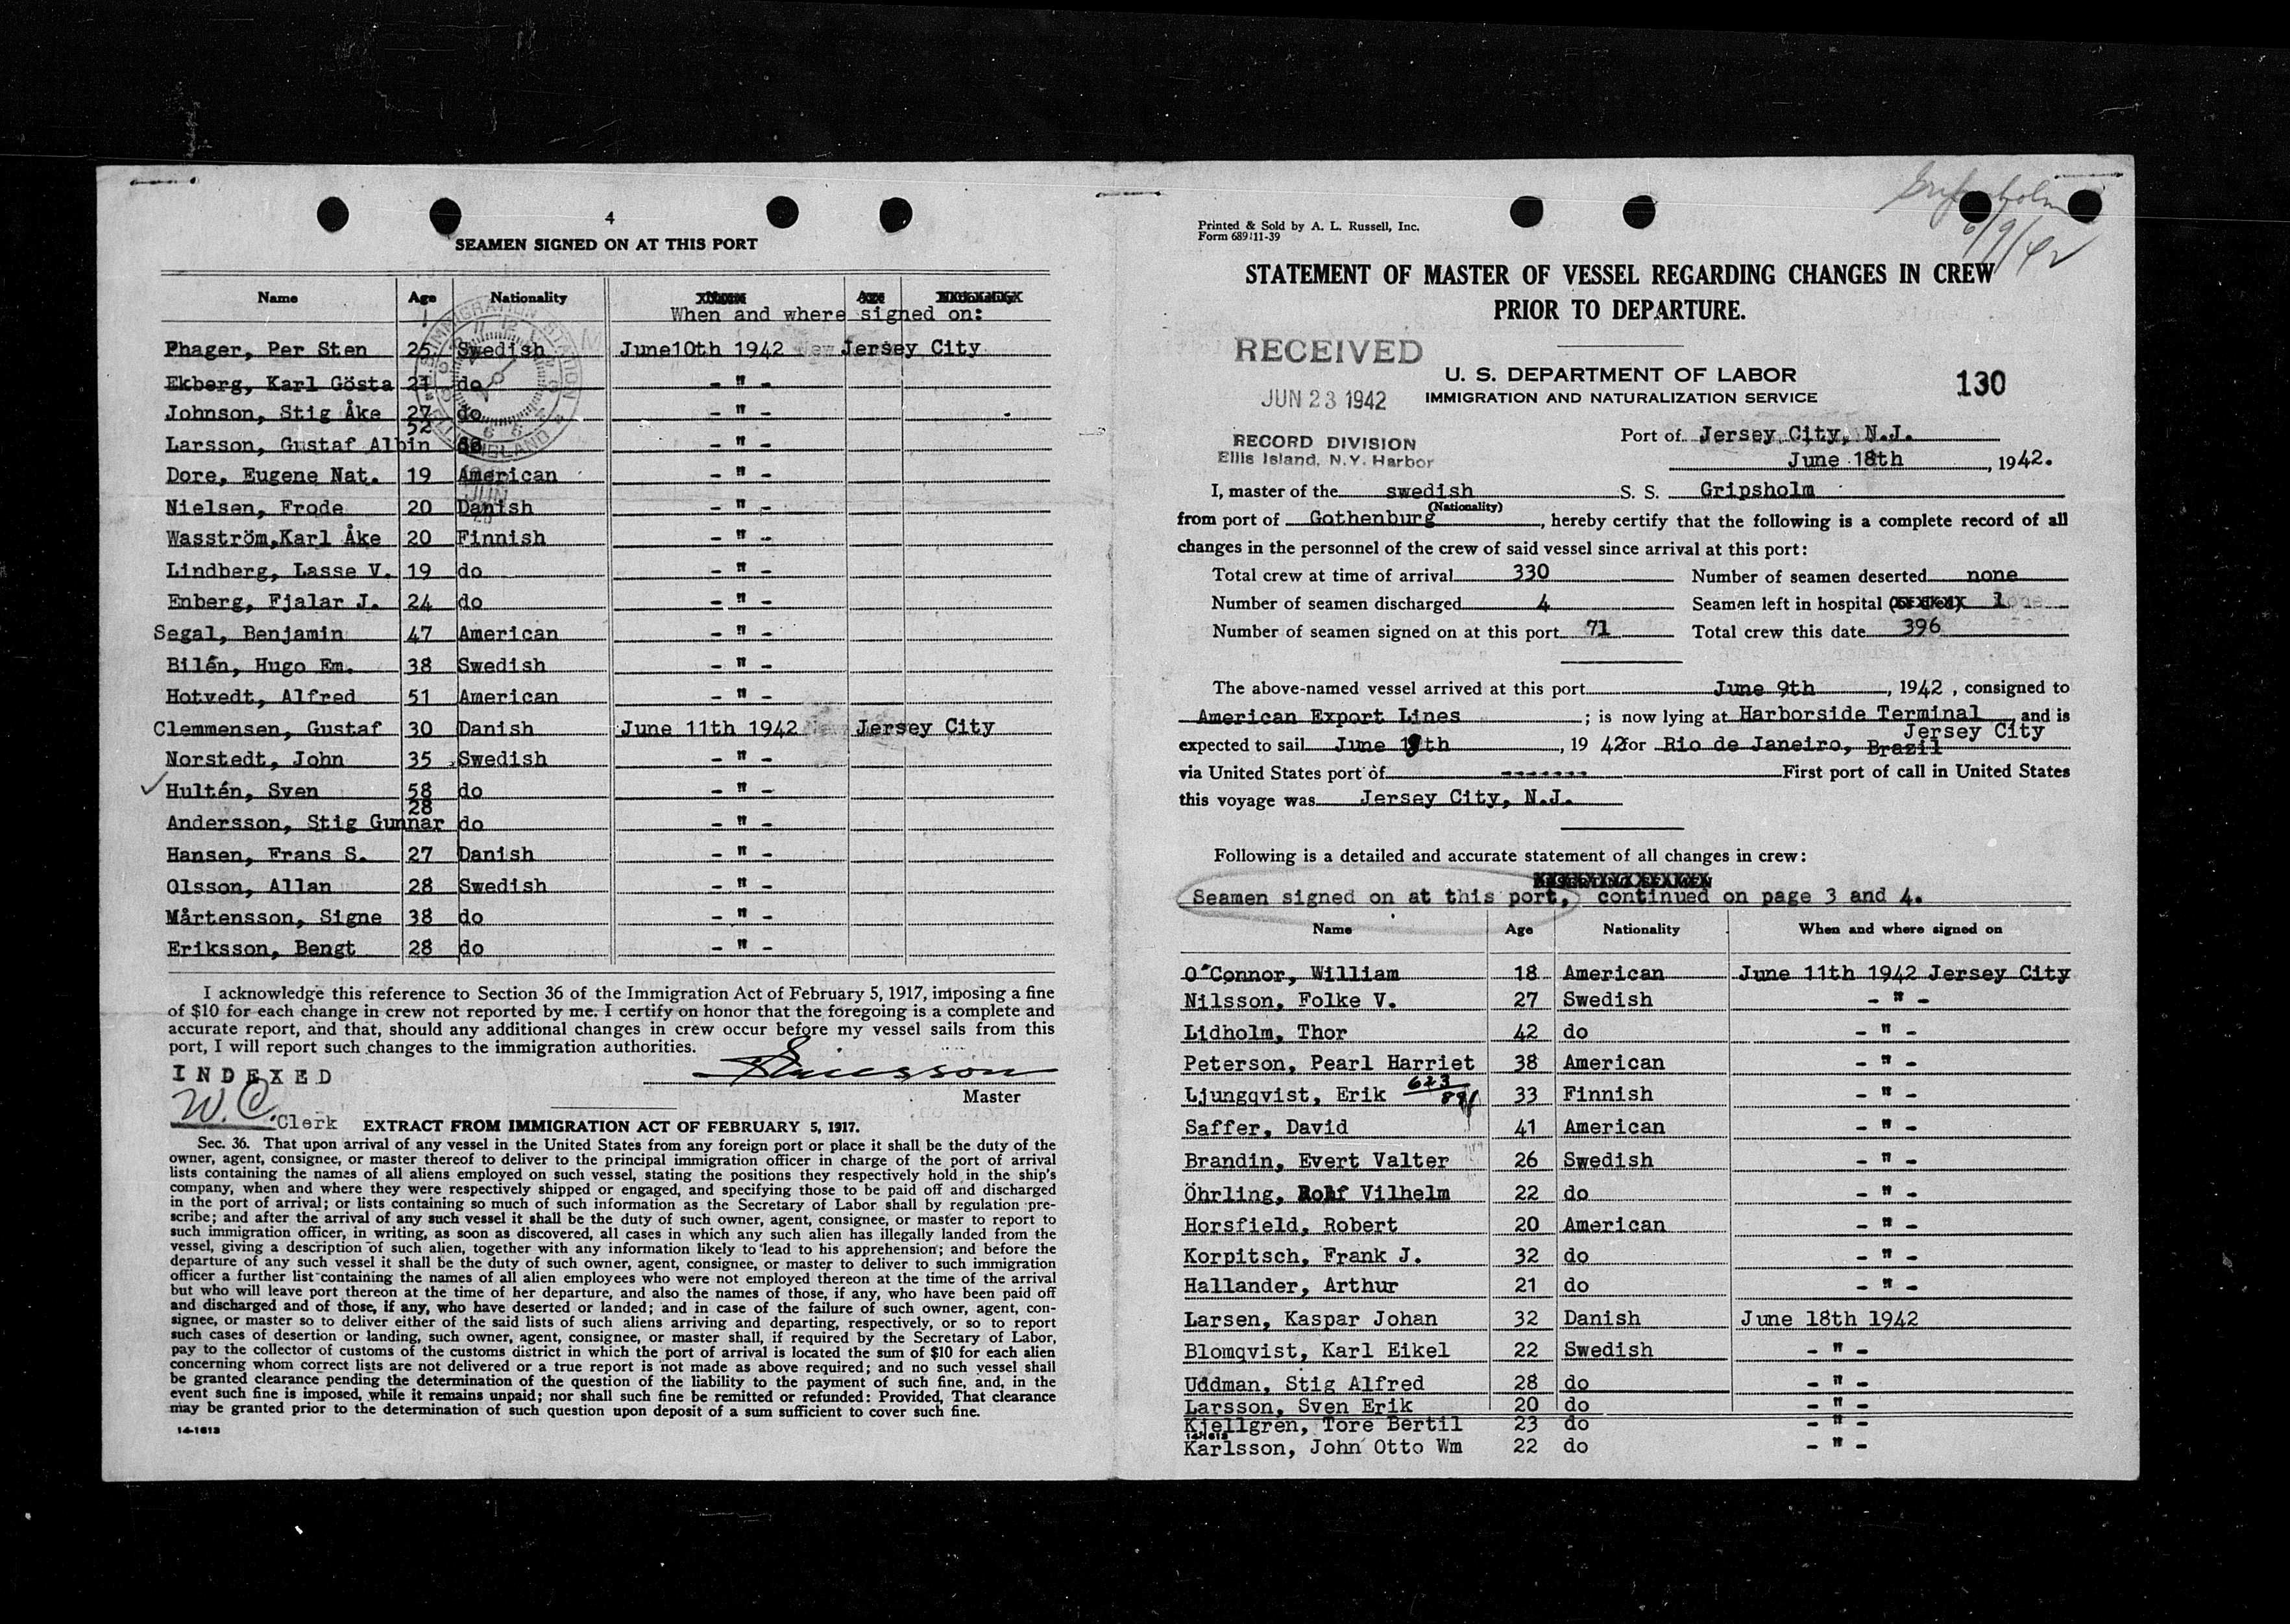 4
SEAMEN SIGNED ON AT THIS PORT
Name Age Nationality
When and where signed on:
Phager, Per Sten 25 Swedish June10th 1942 Jersey City
Ekberg, Karl Gösta 21 do - " -
Johnson, Stig Åke 27 do - " -
Larsson, Gustaf Albin 52 do - " -
Dore, Eugene Nat. 19 American - " -
Nielsen, Frode 20 Danish - " -
Wasström,Karl Åke 20 Finnish - " -
Lindberg, Lasse V. 19 do - " -
Enberg, Fjalar J. 24 do - " -
Segal, Benjamin 47 American - " -
Bilén, Hugo Em. 38 Swedish - " -
Hotvedt, Alfred 51 American - " -
Clemmensen, Gustaf 30 Danish June 11th 1942 Jersey City
Norstedt, John 35 Swedish - " -
Hultén, Sven 58 do - " -
Andersson, Stig Gunnar 28 do - " -
Hansen, Frans S. 27 Danish - " -
Olsson, Allan 28 Swedish - " -
Mårtensson, Signe 38 do - " -
Eriksson, Bengt 28 do - " -
I acknowledge this reference to Section 36 of the Immigration Act of February 5, 1917, imposing a fine
of $10 for each change in crew not reported by me. I certify on honor that the foregoing is a complete and
accurate report, and that, should any additional changes in crew occur before my vessel sails from this
port, I will report such changes to the immigration authorities.
INDEXED
Master
W.C. Clerk
EXTRACT FROM IMMIGRATION ACT OF FEBRUARY 5, 1917.
Sec. 36. That upon arrival of any vessel in the United States from any foreign port or place it shall be the duty of the
owner, agent, consignee, or master thereof to deliver to the principal immigration officer in charge of the port of arrival
lists containing the names of all aliens employed on such vessel, stating the positions they respectively hold in the ship's
company, when and where they were respectively shipped or engaged, and specifying those to be paid off and discharged
in the port of arrival; or lists containing so much of such information as the Secretary of Labor shall by regulation pre-
scribe; and after the arrival of any such vessel it shall be the duty of such owner, agent, consignee, or master to report to
such immigration officer, in writing, as soon as discovered, all cases in which any such alien has illegally landed from the
vessel, giving a description of such alien, together with any information likely to lead to his apprehension; and before the
departure of any such vessel it shall be the duty of such owner, agent, consignee, or master to deliver to such immigration
officer a further list containing the names of all alien employees who were not employed thereon at the time of the arrival
but who will leave port thereon at the time of her departure, and also the names of those, if any, who have been paid off
and discharged and of those, if any, who have deserted or landed; and in case of the failure of such owner, agent, con-
signee, or master so to deliver either of the said lists of such aliens arriving and departing, respectively, or so to report
such cases of desertion or landing, such owner, agent, consignee, or master shall, if required by the Secretary of Labor,
pay to the collector of customs of the customs district in which the port of arrival is located the sum of $10 for each alien
concerning whom correct lists are not delivered or a true report is not made as above required; and no such vessel shall
be granted clearance pending the determination of the question of the liability to the payment of such fine, and, in the
event such fine is imposed, while it remains unpaid; nor shall such fine be remitted or refunded: Provided, That clearance
may be granted prior to the determination of such question upon deposit of a sum sufficient to cover such fine.
14-1613
Gripsholm
6/9/42
Printed & Sold by A. L. Russell, Inc.
Form 689 11-39
STATEMENT OF MASTER OF VESSEL REGARDING CHANGES IN CREW
PRIOR TO DEPARTURE.
RECEIVED
JUN 23 1942
RECORD DIVISION
Ellis Island, N.Y. Harbor
U. S. DEPARTMENT OF LABOR
IMMIGRATION AND NATURALIZATION SERVICE
130
Port of Jersey City, N.J.
June 18th, 1942.
I, master of the swedish S. S. Gripsholm
(Nationality)
from port of Gothenburg, hereby certify that the following is a complete record of all
changes in the personnel of the crew of said vessel since arrival at this port:
Total crew at time of arrival 330 Number of seamen deserted none
Number of seamen discharged 4 Seamen left in hospital 1
Number of seamen signed on at this port 71 Total crew this date 396
The above-named vessel arrived at this port June 9th, 1942, consigned to
American Export Lines; is now lying at Harborside Terminal and is
Jersey City
expected to sail June 19th, 1942 for Rio de Janeiro, Brazil
via United States port of ------- First port of call in United States
this voyage was Jersey City, N.J.
Following is a detailed and accurate statement of all changes in crew:
Seamen signed on at this port, continued on page 3 and 4.
Name Age Nationality When and where signed on
O'Connor, William 18 American June 11th 1942 Jersey City
Nilsson, Folke V. 27 Swedish - " -
Lidholm, Thor 42 do - " -
Peterson, Pearl Harriet 38 American - " -
Ljungqvist, Erik 623/891 33 Finnish - " -
Saffer, David 41 American - " -
Brandin, Evert Valter 26 Swedish - " -
Öhrling, Rolf Vilhelm 22 do - " -
Horsfield, Robert 20 American - " -
Korpitsch, Frank J. 32 do - " -
Hallander, Arthur 21 do - " -
Larsen, Kaspar Johan 32 Danish June 18th 1942
Blomqvist, Karl Eikel 22 Swedish - " -
Uddman, Stig Alfred 28 do - " -
Larsson, Sven Erik 20 do - " -
Kjellgren, Tore Bertil 23 do - " -
14-1613
Karlsson, John Otto Wm 22 do - " -